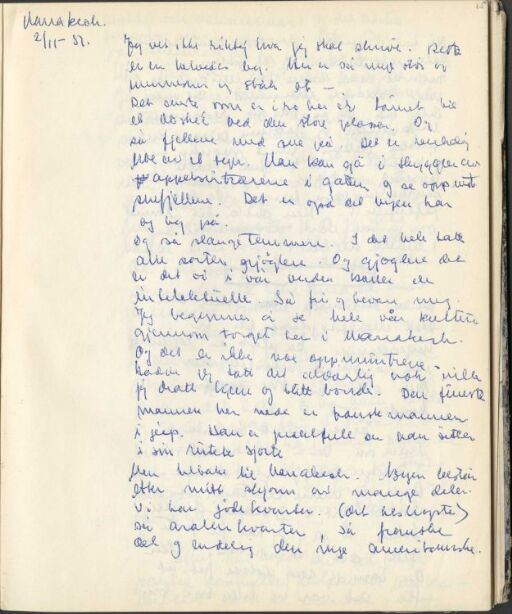 15
Marrakesh.
2/11-51.
Jeg vet ikke riktig hva jeg skal skrive. Dette
er en helvedes by. Her er så mye støv og
mennesker og skrik at —
Det eneste som er i ro her er tårnet til
ved den store plassen. Og
så fjellene med sne på. Det er
syn. Man kan gå i skyggen av
appelsintrærne i gaten og se opp mot
snefjellene. Det er også det byen har
og by på.
Og så slangetemmere. I det hele tatt
alle sorter gjøglere. Og gjøglere det
er det vi i vår verden kaller de
intelektuelle. Så fri og bevare meg.
Jeg begynner å se hele vår kultur
gjennom torget her i Marrakesh.
Og det er ikke noe oppmuntrende.
hadde jeg tatt det alvorlig nok ville
jeg dratt hjem og blitt bonde. Den fineste
mannen her nede er
i jeep. Han er praktfull der han sitter
i sin rutete skjorte
Men tilbake til Marrakesh. Byen består
etter mitt skjønn av mange deler.
Vi har jødekvarter. (det heslegste)
så araberkvarter, så franske
del og endelig den nye amerikanske.